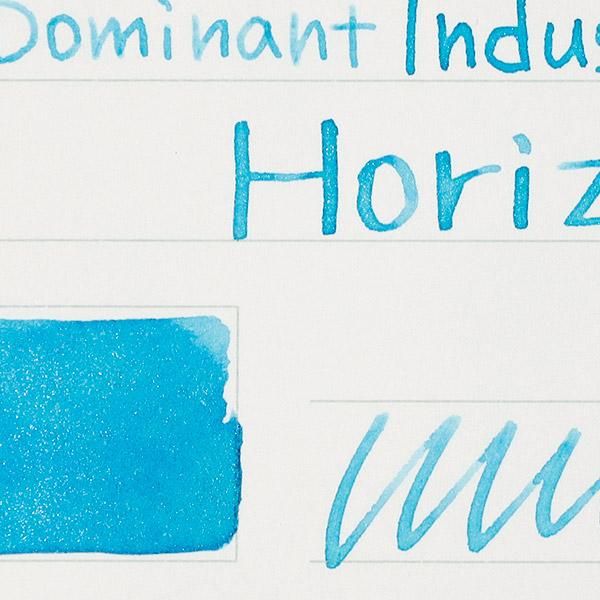 Dominant Indus
Horiz